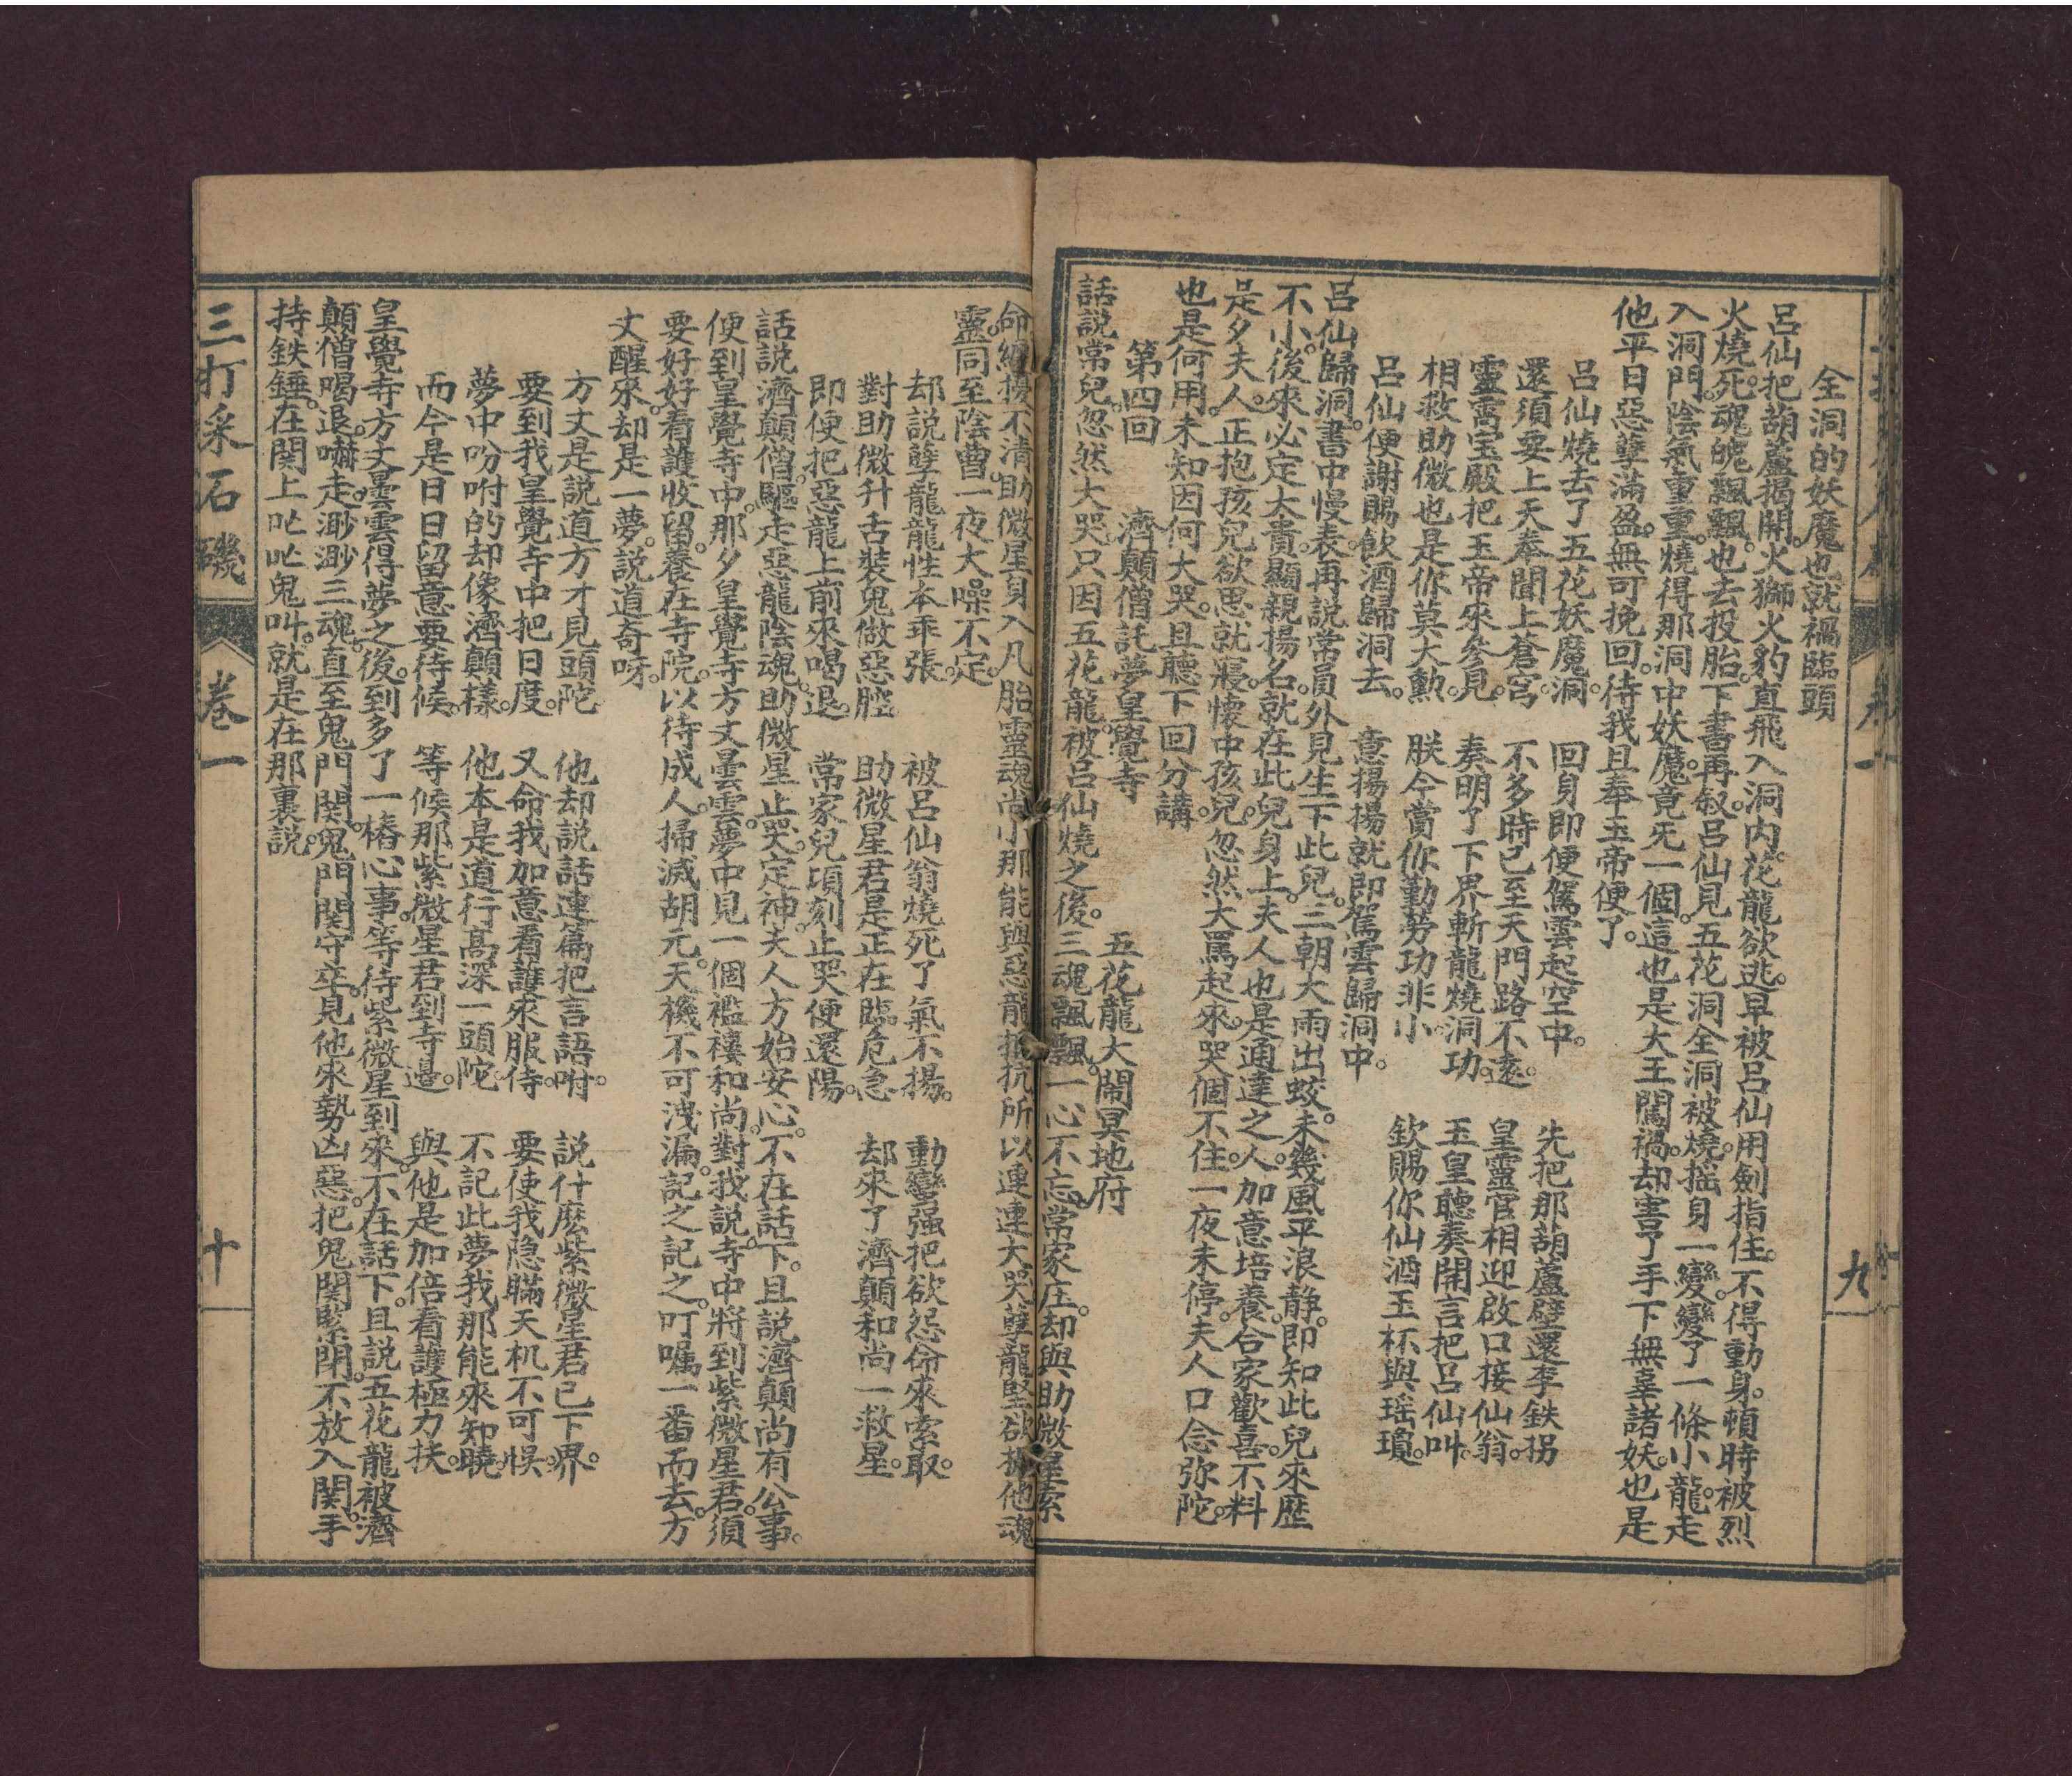 全洞的妖魔也就禍臨頭
呂仙把葫蘆揭開。火獅火豹直飛入洞内。花龍欲逃。早被呂仙用劍指住。不得動身。頓時被烈
火燒死。魂魄飄飄。也去投胎。下書再叙。呂仙見五花洞全洞被燒。搖身一變。變了一條小龍。走
入洞門。陰氣重重。燒得那洞中妖魔。竟旡一個。這也是大王闖禍。却害了手下無辜諸妖。也是
他平日惡孽滿盈。無可挽回。待我且奉玉帝便了。
呂仙燒去了五花妖魔洞。 回身即便駕雲起空中。 先把那葫蘆壁還李鉄拐
還須要上天奉聞上蒼宫。 不多時已至天門路不遠。 皇靈官相迎啟口接仙翁。
靈霄宝殿把玉帝來參見。 奏明了下界斬龍燒洞功。 玉皇聽奏開言把呂仙叫。
相救助微也是你莫大勲。 朕今賞你勤劳功非小。 欽賜你仙酒玉杯與瑶瓊。
呂仙便謝賜飲酒歸洞去。 意揚揚就即駕雲歸洞中。
呂仙歸洞。書中慢表。再説常員外見生下此兒。三朝大雨出蛟。未幾風平浪静。即知此兒來歴
不小。後來必定大貴。顯親揚名。就在此兒身上。夫人也是通達之人。加意培養。合家歡喜。不料
是夕夫人。正抱孩兒欲思就寢。懷中孩兒。忽然大罵起來。哭個不住。一夜未停。夫人口念弥陀。
也是何用。未知因何大哭。且聽下回分講。
第四回 濟顛僧託夢皇覺寺 五花龍大鬧冥地府
話説常兒。忽然大哭。只因五花龍。被呂仙燒之後。三魂飄飄。一心不忘。常家庄。却與助微星索
命纏擾不清。助微星身入凡胎。靈魂尚小。那能與惡龍抵抗。所以連連大哭。孽龍堅欲擾他魂
靈。同至陰曹。一夜大噪不定。
却説孽龍龍性本乖張。 被呂仙翁燒死了氣不揚。 動蠻强把欲怨命來索取。
對助微升舌裝鬼做惡腔 助微星君是正在臨危急 却來了濟顛和尚一救星。
即便把惡龍上前來喝退。 常家兒頃刻止哭便還陽。
話説濟顛僧。驅走惡龍陰魂。助微星止哭定神。夫人方始安心。不在話下。且説濟顛尚有公事。
便到皇覺寺中。那夕皇覺寺方丈曇雲。夢中見一個襤褸和尚。對我説。寺中將到紫微星君。須
要好好看護收留。養在寺院。以待成人。掃滅胡元。天機不可洩漏。記之記之。叮嘱一番而去。方
丈醒來。却是一夢。説道奇呀。
方丈是説道方才見頭陀 他却説話連篇把言語咐。 説什麽紫微星君已下界。
要到我皇覺寺中把日度。 又命我加意看護來服侍。 要使我隐瞞天机不可悮。
夢中吩咐的却像濟顛樣。 他本是道行高深一頭陀。 不記此夢我那能來知曉。
而今是日日留意要待候。 等候那紫微星君到寺邊。 與他是加倍看護極力扶。
皇覺寺方丈曇雲得夢之後。到多了一樁心事。等待紫微星到來。不在話下。且説五花龍被濟
顛僧喝退。嚇走。渺渺三魂。直至鬼門関。鬼門関守卒。見他來勢凶惡。把鬼関緊閉。不放入関。手
持鉄錘。在関上吆吆鬼叫。就是在那裏説。
三打采石磯
卷一
九
十